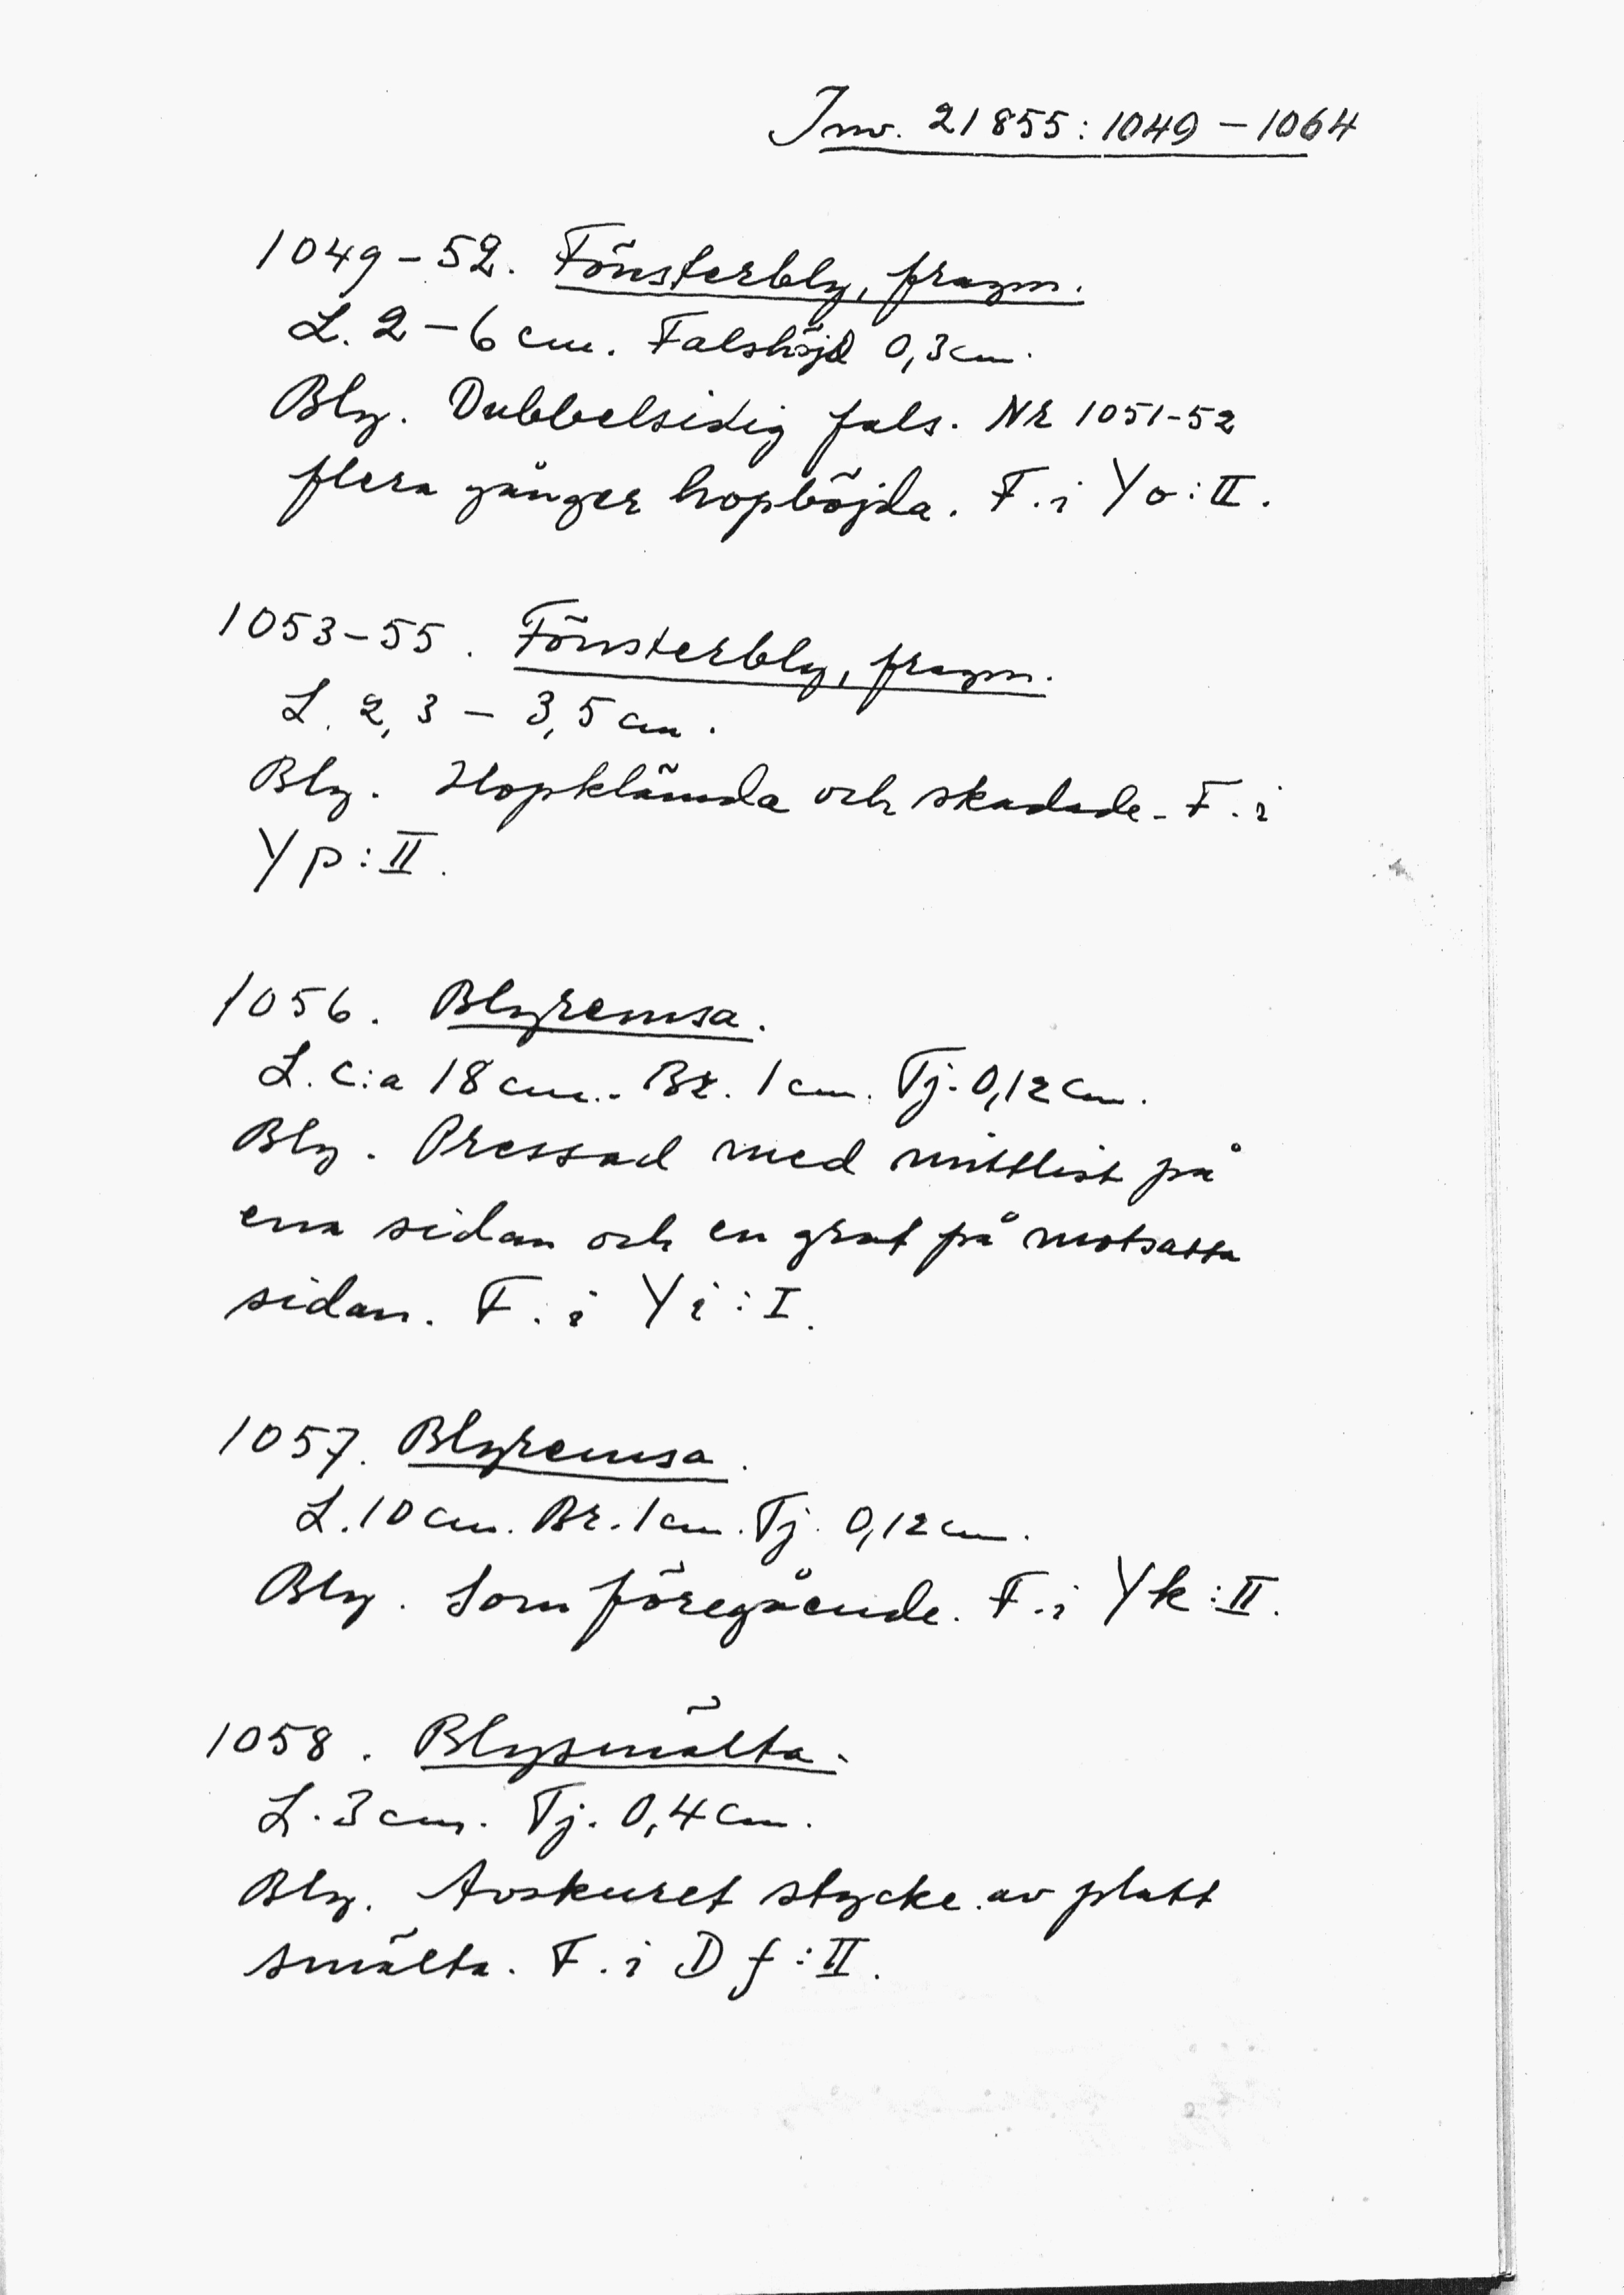 Inv. 21855:1049-1064
1049-52. Fönsterbly, fragm.
L. 2-6 cm. Falshöjd 0,3 cm.
Bly. Dubbelsidig fals. Nr 1051-52
flera gånger hopböjda. F. i Yo:II.
1053-55. Fönsterbly, fragm.
L. 2,3 - 3,5 cm.
Bly. Hopklämda och skadade. F. i
Yp:II.
1056. Blyremsa.
L. c:a 18 cm. Br. 1 cm. Tj. 0,12 cm.
Bly. Pressad med mittlist på
ena sidan och en grat på motsatta
sidan. F. i Yi:I.
1057. Blyremsa.
L. 10 cm. Br. 1 cm. Tj. 0,12 cm.
Bly. Som föregående. F. i Yk:II.
1058. Blysmälta.
L. 3 cm. Tj. 0,4 cm.
Bly. Avskuret stycke av platt
smälta. F. i Df:II.